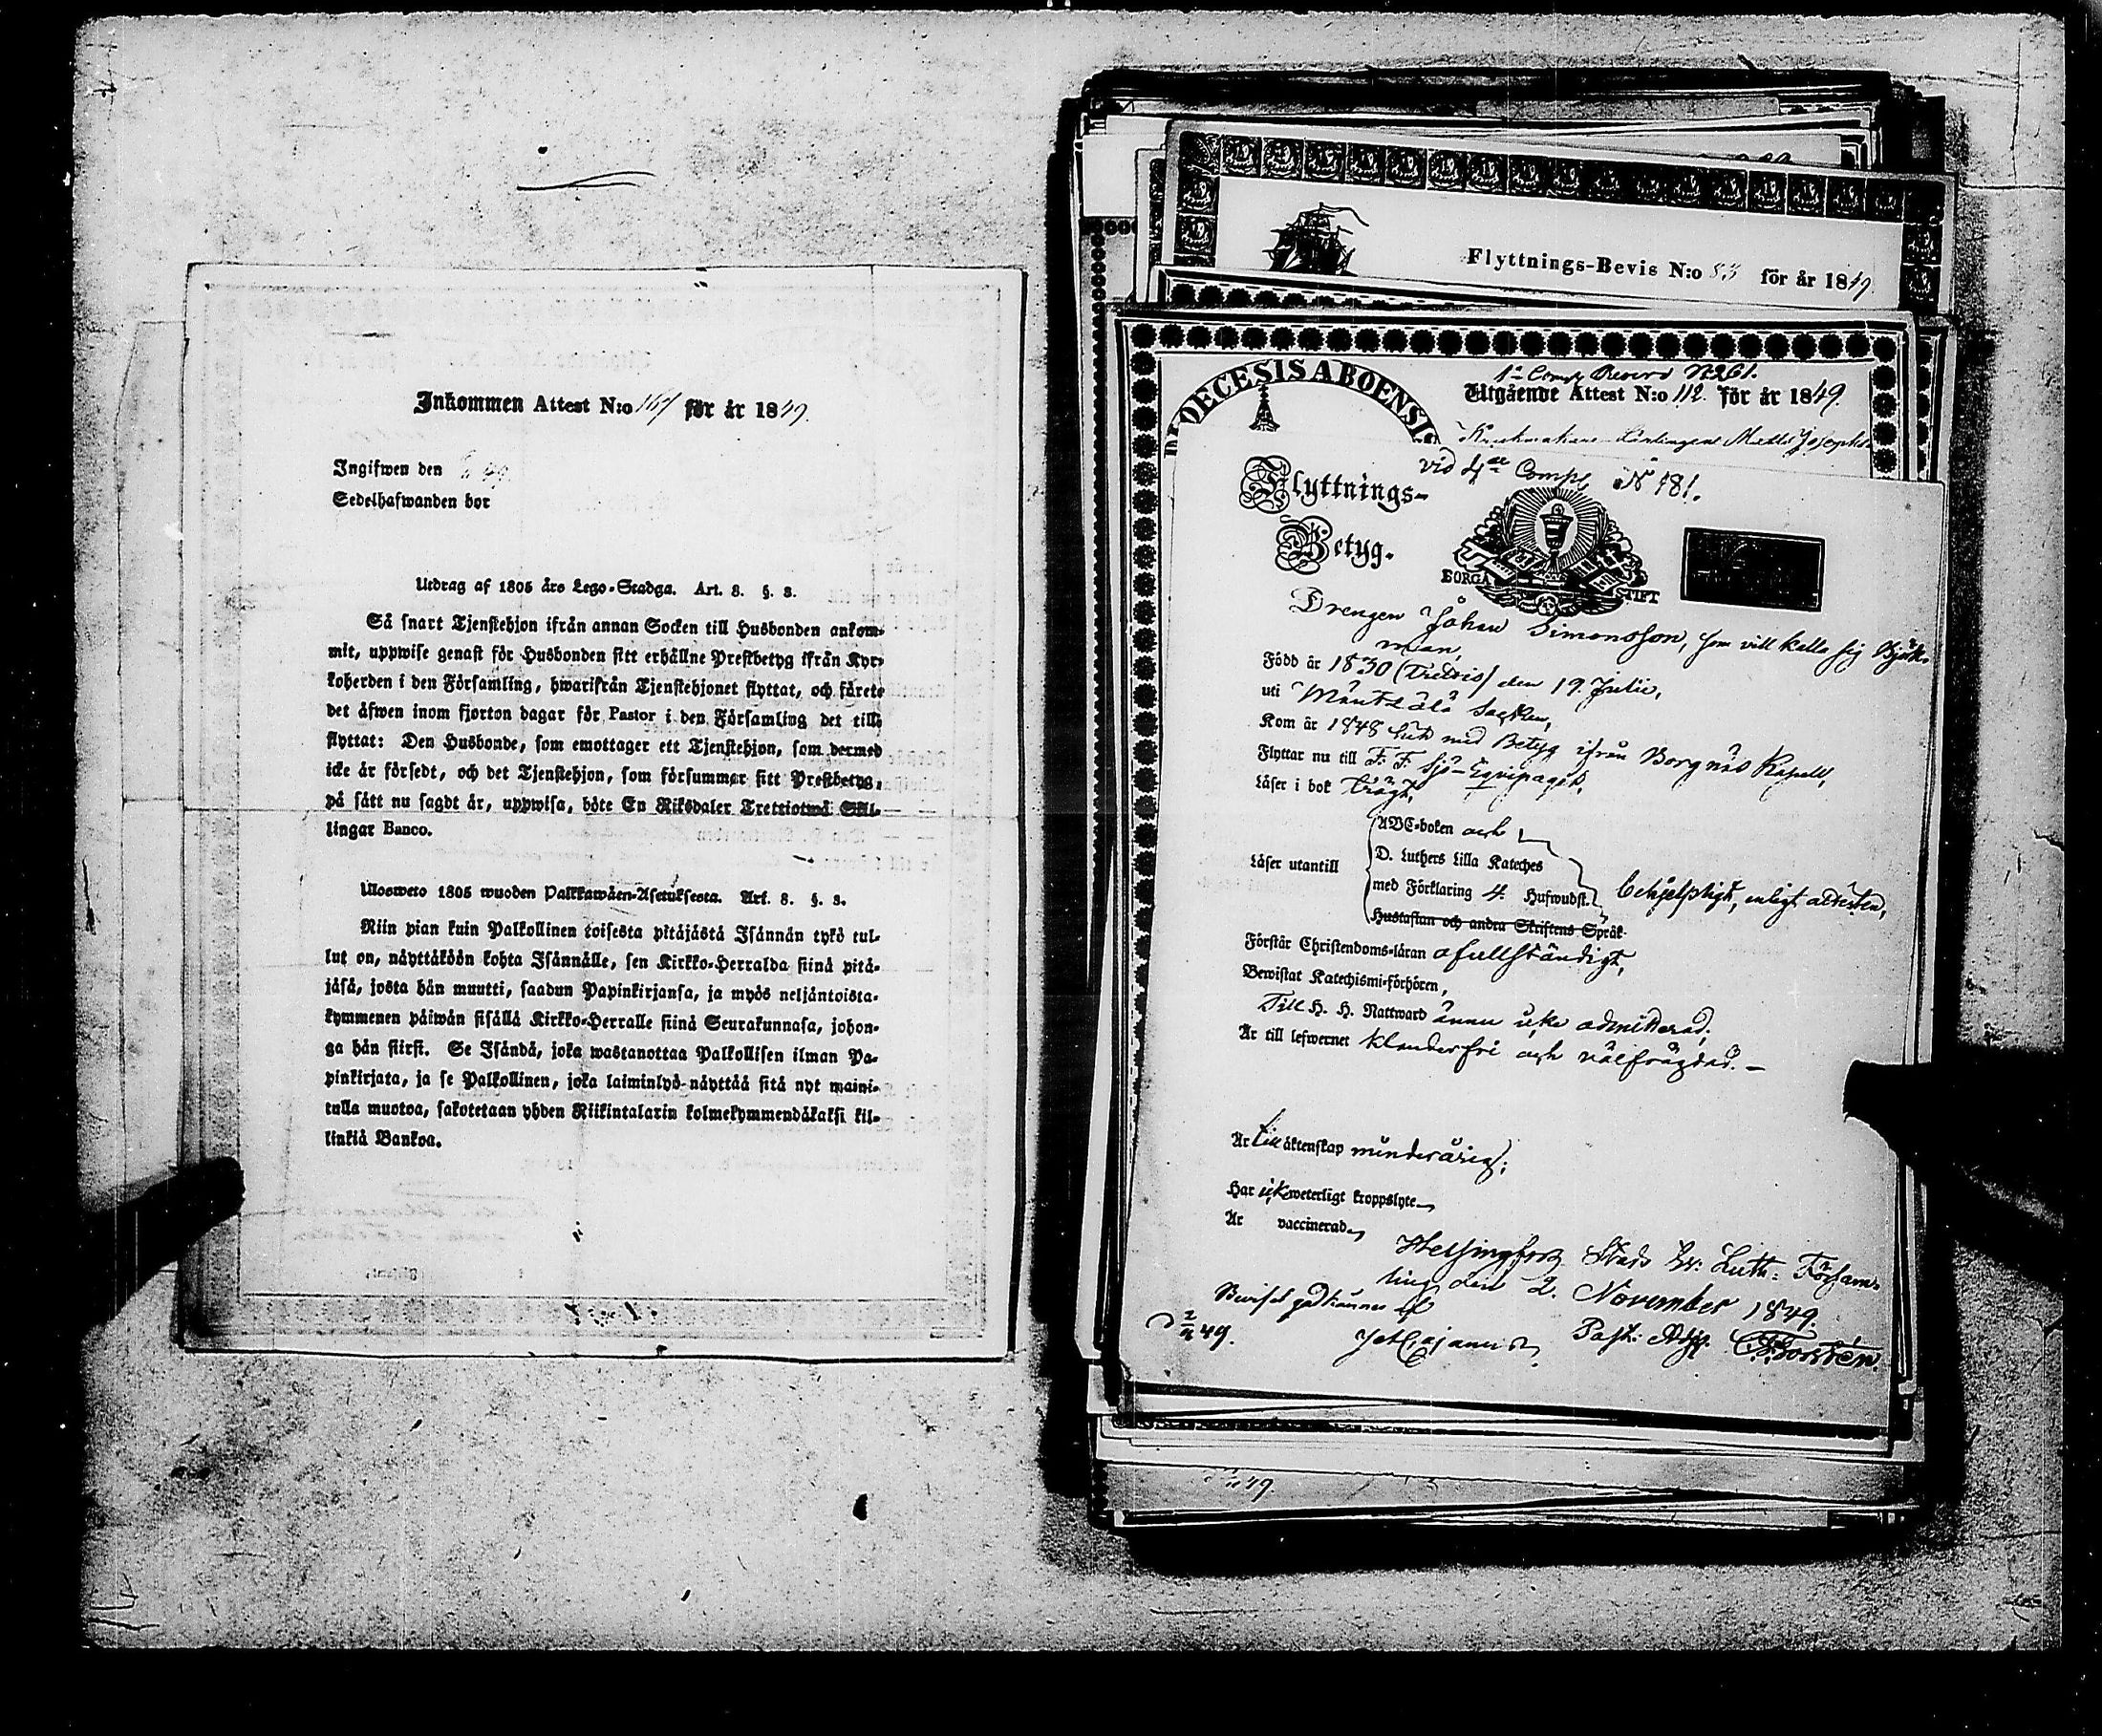 Inkommen Attest N:o 167 för år 1849.
Ingifwen den
Sedelhafwanden bor
Utdrag af 1805 års Lego-Stadga. Art. 8. §. 3.
Så snart Tjenstehjon ifrån annan Socken till Husbonden ankom-
mit, uppwise genast för Husbonden sitt erhållne Prestbetyg ifrån Kyr-
koherden i den Församling, hwarifrån Tjenstehjonet flyttat, och färete
det äfwen inom fjorton dagar för Pastor i den Församling det till-
flyttat: Den Husbonde, som emottager ett Tjenstehjon, som dermed
icke är försedt, och det Tjenstehjon, som försummar sitt Prestbetyg,
på sätt nu sagdt är, uppwisa, böte En Riksdaler Trettiotwå Skil-
lingar Banco.
Ulosweto 1805 wuoden Palkkawäen-Asetuksesta. Art. 8. §. 3.
Niin pian kuin Palkollinen toisesta pitäjästä Isännän tykö tul-
lut on, näyttäköön kohta Isännälle, sen Kirkko-Herralda siinä pitä-
jäsä, josta hän muutti, saadun Papinkirjansa, ja myös neljäntoista-
kymmenen päiwän sisällä Kirkko-Herralle siinä Seurakunnasa, johon-
ga hän siirsi. Se Isändä, joka wastanottaa Palkollisen ilman Pa-
pinkirjata, ja se Palkollinen, joka laiminlyö näyttää sitä nyt maini-
tulla muotoa, sakotetaan yhden Riikintalarin kolmekymmendäkaksi kil-
linkiä Bankoa.
Flyttnings-Bevis N:o 83 för år 1849.
DIOECESIS ABOENSIS
N:o 261.
Utgående Attest N:o 112. för år 1849.
Josephs
vid 4de Comp. N 181.
Flyttnings-
Betyg.
BORGÅ STIFT
Drengen Johan Simonsson, som vill kalla sig Björk-
man,
Född år 1830 (Tretio) den 19. Julii,
uti Mäntzälä Socken,
Kom år 1848 hit med Betyg ifrån Borgnäs Kapell,
Flyttar nu till F. F. Sjö-Equipaget,
Läser i bok trögt,
ABC-boken och
Läser utantill D. Luthers lilla Kateches
med Förklaring 4. Hufwudst. behjelpligt, enligt attesten,
Hustaflan och andra Skriftens Språk.
Förstår Christendoms-läran ofullständigt,
Bewistat Katechismi-förhören,
Till H. H. Nattward ännu icke admitterad;
Är till lefwernet klanderfri och välfrägdad. —
Är till äktenskap minderårig;
Har ick weterligt kroppslyte
Är vaccinerad
Helsingfors Stads Ev: Luth: Försam-
ling den 2. November 1849.
Beviset godkännes af
2/11 49.
Past. Adj.
49